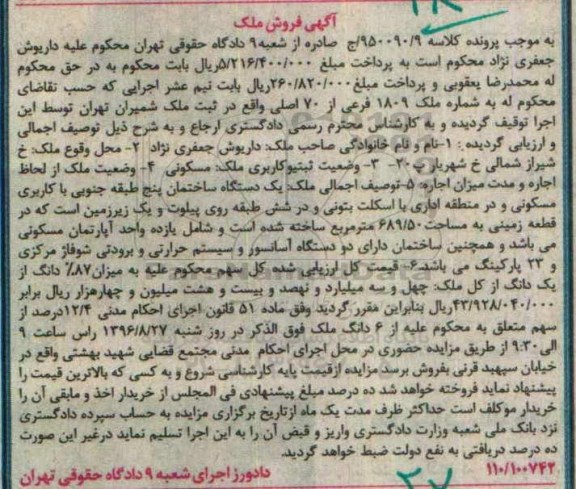 آگهی فروش ملک
به موجب پرونده کلاسه ۹۵۰۰۹۰/۹/ج صادره از شعبه ۹ دادگاه حقوقی تهران محکوم علیه داریوش
جعفری نژاد محکوم است به پرداخت مبلغ ۵/۲۱۶/۴۰۰/۰۰۰ریال بابت محکوم به در حق محکوم
له محمدرضا یعقوبی و پرداخت مبلغ ۲۶۰/۸۲۰/۰۰۰ریال بابت نیم عشر اجرایی که حسب تقاضای
محکوم له به شماره ملک ۱۸۰۹ فرعی از ۷۰ اصلی واقع در ثبت ملک شمیران تهران توسط این
اجرا توقیف گردیده و به کارشناس محترم رسمی دادگستری ارجاع و به شرح ذیل توصیف اجمالی
و ارزیابی گردیده: ۱-نام و نام خانوادگی صاحب ملک: داریوش جعفری نژاد ۲- محل وقوع ملک: خ
شیراز شمالی خ شهریار پ۳۰- ۳- وضعیت ثبتیوکاربری ملک: مسکونی ۴- وضعیت ملک از لحاظ
اجاره و مدت میزان اجاره: ۵-توصیف اجمالی ملک: یک دستگاه ساختمان پنج طبقه جنوبی با کاربری
مسکونی و در منطقه اداری با اسکلت بتونی و در شش طبقه روی پیلوت و یک زیرزمین است که در
قطعه زمینی به مساحت ۶۸۹/۵۰ مترمربع ساخته شده است و شامل یازده واحد آپارتمان مسکونی
می باشد و همچنین ساختمان دارای دو دستگاه آسانسور و سیستم حرارتی و برودتی شوفاژ مرکزی
و ۲۳ پارکینگ می باشد.۶- قیمت کل ارزیابی شده کل سهم محکوم علیه به میزان ۸۷٪ دانگ از
یک دانگ از کل ملک: چهل و سه میلیارد و نهصد و بیست و هشت میلیون و چهارهزار ریال برابر
۴۳/۹۲۸/۰۴۰/۰۰۰ریال بنابراین مقرر گردید وفق ماده ۵۱ قانون اجرای احکام مدنی ۱۲/۴درصد از
سهم متعلق به محکوم علیه از ۶ دانگ ملک فوق الذکر در روز شنبه ۱۳۹۶/۸/۲۷ راس ساعت ۹
الی ۹:۳۰ از طریق مزایده حضوری در محل اجرای احکام مدنی مجتمع قضایی شهید بهشتی واقع در
خیابان سپهبد قرنی بفروش برسد مزایده ازقیمت پایه کارشناسی شروع و به کسی که بالاترین قیمت را
پیشنهاد نماید فروخته خواهد شد ده درصد مبلغ پیشنهادی فی المجلس از خریدار اخذ و مابقی آن را
خریدار موکلف است حداکثر ظرف مدت یک ماه ازتاریخ برگزاری مزایده به حساب سپرده دادگستری
نزد بانک ملی شعبه وزارت دادگستری واریز و قبض آن را به این اجرا تسلیم نماید درغیر این صورت
ده درصد دریافتی به نفع دولت ضبط خواهد گردید.
۱۱۰/۱۰۰۷۴۲
دادورز اجرای شعبه ۹ دادگاه حقوقی تهران